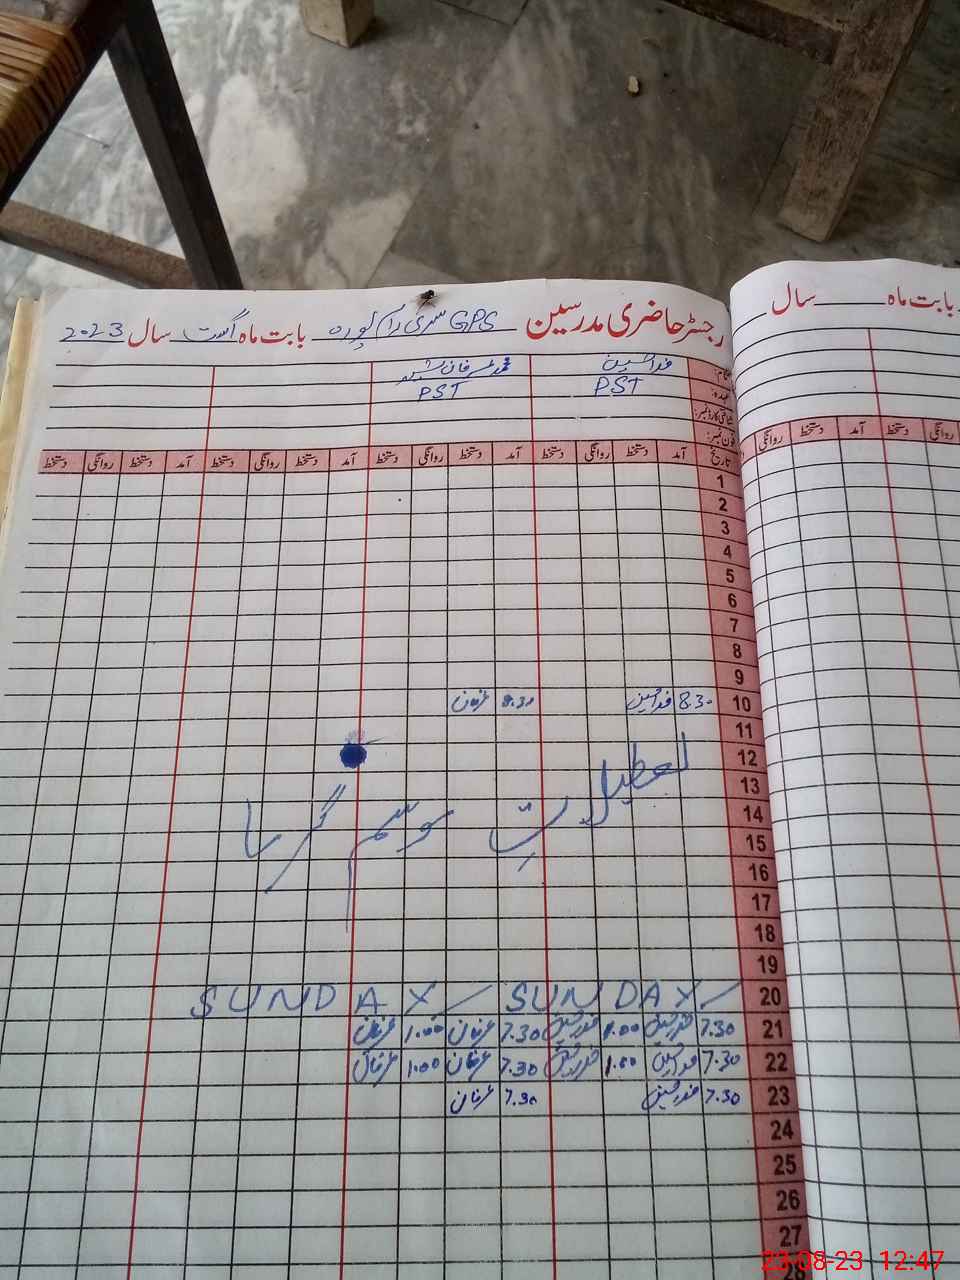 رجسٹر حاضری مدرسین GPS سری رام پورہ بابت ماہ اگست سال 2023
بابت ماہ سال
نام: فدا حسین محمد عرفان
عہدہ: PST PST
شناختی کارڈ نمبر:
فون نمبر:
تاریخ آمد دستخط روانگی دستخط آمد دستخط روانگی دستخط آمد دستخط روانگی دستخط آمد دستخط روانگی دستخط
روانگی دستخط آمد دستخط روانگی
1
2
3
4
5
6
7
8
9
10 8.30 فدا حسین 8.30 عرفان
11
12
13
تعطیلاتِ موسم گرما
14
15
16
17
18
19
20 SUNDAY SUNDAY
21 7.30 فدا حسین 1.00 فدا حسین 7.30 عرفان 1.00 عرفان
22 7.30 فدا حسین 1.00 فدا حسین 7.30 عرفان 1.00 عرفان
23 7.30 فدا حسین 7.30 عرفان
24
25
26
27
28
23-08-23 12:47